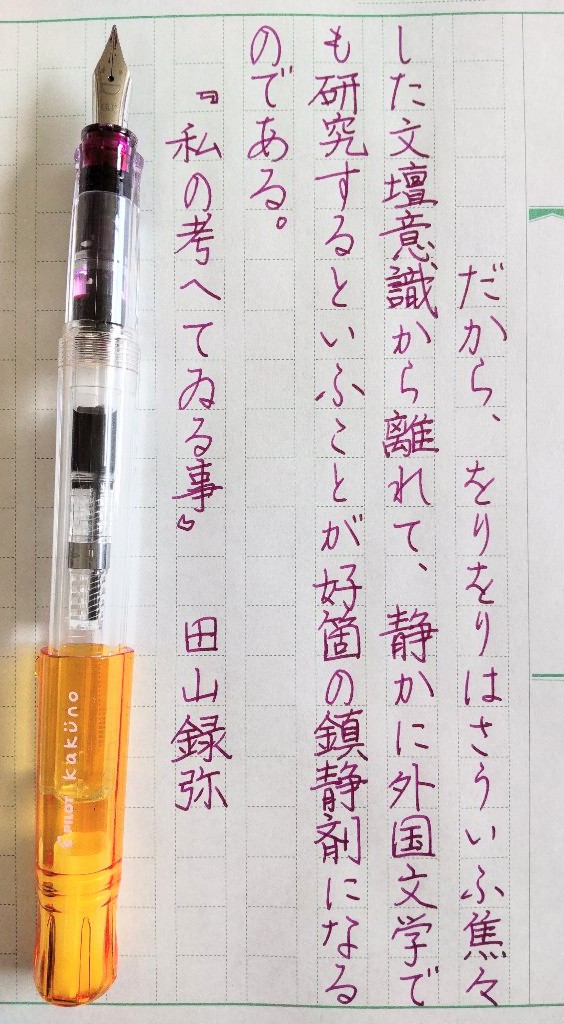 だから、をりをりはさういふ焦々
した文壇意識から離れて、静かに外国文学で
も研究するといふことが好箇の鎮静剤になる
のである。
『私の考へてゐる事』 田山録弥
PILOT kaküno